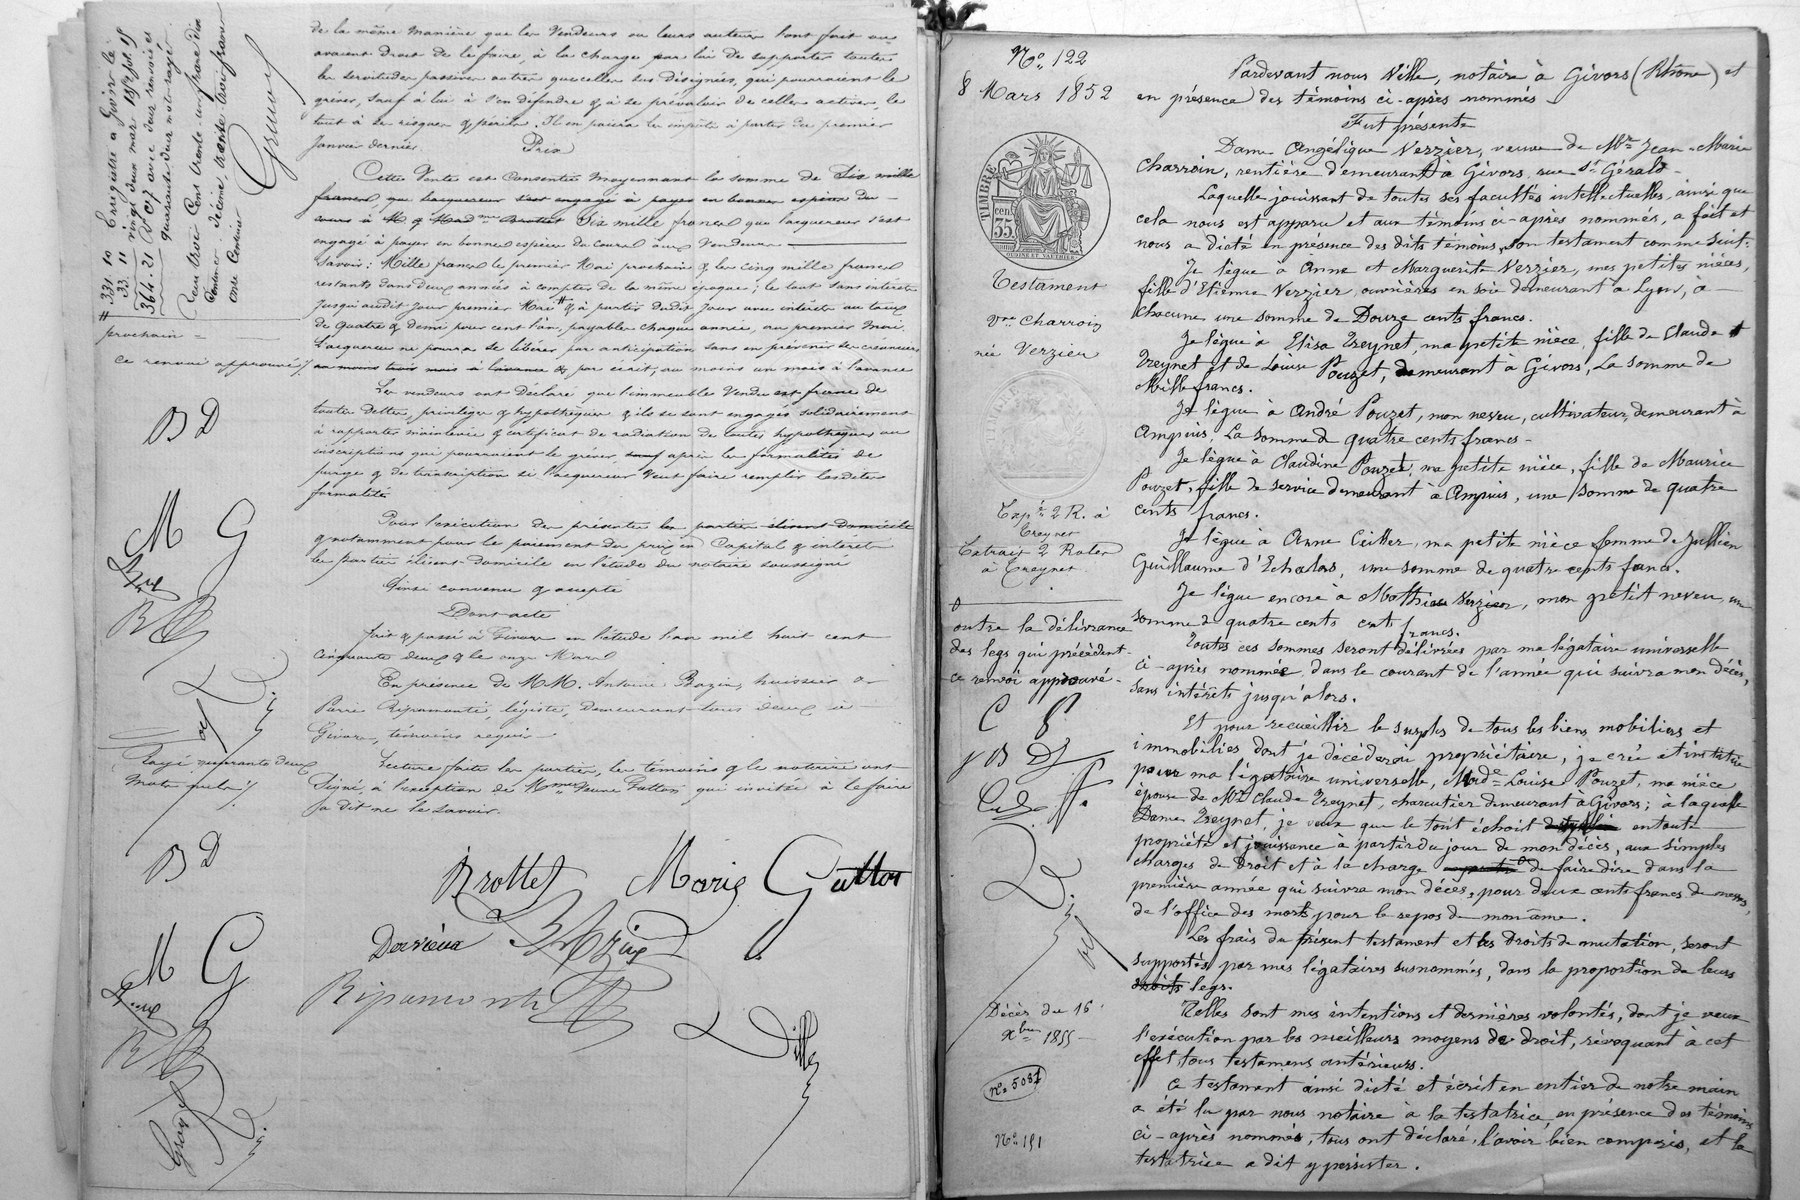 de la même manière que les Vendeurs ou leurs auteurs l'ont fait ou
avaient droit de le faire, à la charge par lui de supporter toutes
les servitudes passives autres que celles sus désignées, qui pourraient le
grever, sauf à lui à s'en défendre & à se prévaloir de celles actives, le
tout à ses risques & périls. Il en paiera les impôts à partir du premier
Janvier dernier.
Prix
Cette Vente est Consentie moyennant la somme de Six mille
francs, que l'acquéreur s'est engagé à payer en bonnes espèces du
cours à M. & Mad.me Six mille francs que l'acquéreur s'est
engagé à payer en bonnes espèces du cours aux Vendeurs
Savoir: Mille francs le premier Mai prochain & les cinq mille francs
restants dans deux années à compter de la même époque; le tout sans intérêts
jusqu'audit jour premier Mai & à partir dudit jour avec intérêts au taux
de quatre & demi pour cent l'an, payables chaque année, au premier Mai.
L'acquéreur ne pourra se libérer par anticipation sans en prévenir ses créanciers
au moins trois mois à l'avance & par écrit, au moins un mois à l'avance
Les vendeurs ont Déclaré que l'immeuble Vendu est franc de
toutes dettes, privilèges & hypothèques & ils se sont engagés solidairement
à rapporter mainlevée & certificat de radiation de toutes hypothèques ou
inscriptions qui pourraient le grever sauf après les formalités de
purge & de transcription si l'acquéreur Veut faire remplir lesdites
formalités
Pour l'exécution des présentes les parties élisent domicile
& notamment pour le paiement du prix en Capital & intérêts
les parties élisent Domicile en l'étude du notaire soussigné
Ainsi convenu & accepté
Dont acte
fait & passé à Givors en l'étude l'an mil huit cent
cinquante deux & le onze Mars
En présence de MM. Antoine Bazin, huissier &
Pierre Ripamonti, légiste, Demeurant tous deux à
Givors, témoins requis
Lecture faite les parties, les témoins & le notaire ont
Signé, à l'exception de Mme Veuve Gutton qui invitée à le faire
a dit ne le savoir.
Brottet Marie Gutton
Dervieux Bazin
Ripamonti
Ville
Enregistré à Givors le
vingt deux mars 1852 fol 15
V° C 7 avec deux renvois et
quarante deux mots rayés
331. 10
33. 11
364. 21
prochain =
ce renvoi approuvé
B D
M G
Rayé quarante deux
Mots nuls
B D
M G
N° 122
8 Mars 1852
TIMBRE
35 cen.
Testament
Vve Charroin
née Verzier
Exp. 2 R. à
Treynet
Extrait 2 Roles
à Treynet
outre la délivrance
des legs qui précèdent.
ce renvoi approuvé -
Décès du 16
Xbre 1855 -
N° 5087
N° 151
Pardevant nous Ville, notaire à Givors (Rhône) et
en présence des témoins ci-après nommés
Fut présente
Dame Angélique Verzier, veuve de Mr Jean-Marie
Charroin, rentière demeurant à Givors, rue St Gérald -
Laquelle jouissant de toutes ses facultés intellectuelles, ainsi que
cela nous est apparu et aux témoins ci-après nommés, a fait et
nous a dicté en présence des dits témoins, son testament comme suit:
Je lègue à Anne et Marguerite Verzier, mes petites nièces,
fille d'Etienne Verzier, ouvrières en soie demeurant à Lyon, à -
chacune, une somme de Douze cents francs.
Je lègue à Elisa Treynet, ma petite nièce, fille de Claude
Treynet et de Louise Pouzet, demeurant à Givors, La somme de
Mille francs.
Je lègue à André Pouzet, mon neveu, cultivateur, demeurant à
Ampuis, La somme de quatre cents francs -
Je lègue à Claudine Pouzet, ma petite nièce, fille de Maurice
Pouzet, fille de service demeurant à Ampuis, une somme de quatre
cents francs.
Je lègue à Anne Ceiller, ma petite nièce femme de Jullien
Guillaume d'Echalas, une somme de quatre cents francs.
Je lègue encore à Mathieu Verzier, mon petit neveu, une
somme de quatre cents cents francs.
Toutes ces sommes seront délivrées par ma légataire universelle
ci-après nommée, dans le courant de l'année qui suivra mon décès,
sans intérêts jusqu'alors.
Et pour recueillir le surplus de tous les biens mobiliers et
immobiliers dont je décèderai propriétaire, je crée et institue
pour ma légataire universelle, Made Louise Pouzet, ma nièce
épouse de Mr Claude Treynet, charcutier demeurant à Givors; à laquelle
Dame Treynet je veux que le tout échoit en toute
propriété et jouissance à partir du jour de mon décès, aux simples
charges de Droit et à la charge de faire dire dans la
première année qui suivra mon décès, pour deux cents francs de messes,
de l'office des morts pour le repos de mon âme.
Les frais du présent testament et les Droits de mutation, seront
supportés par mes légataires susnommés, dans la proportion de leurs
droits legs.
Telles sont mes intentions et dernières volontés, dont je veux
l'exécution par les meilleurs moyens de droit, révoquant à cet
effet, tous testamens antérieurs.
Ce testament ainsi dicté et écrit en entier de notre main
a été lu par nous notaire à la testatrice, en présence des témoins
ci-après nommés, tous ont déclaré l'avoir bien compris, et la
testatrice a dit y persister.